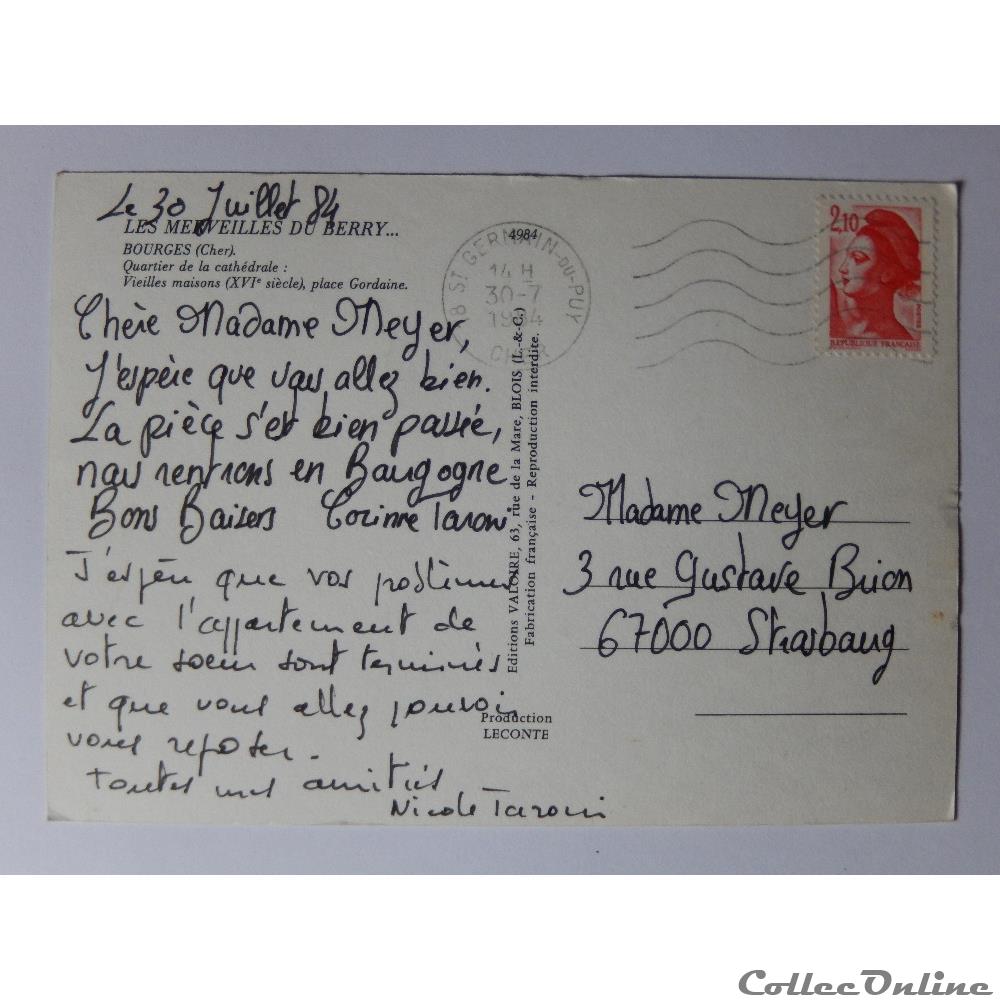 Le 30 Juillet 84
LES MERVEILLES DU BERRY...
BOURGES (Cher).
Quartier de la cathédrale :
Vieilles maisons (XVIe siècle), place Gordaine.
Chère Madame Meyer,
J'espère que vous allez bien.
La pièce s'est bien passée,
nous rentrons en Bourgogne
Bons Baisers Corinne Taroni
J'espère que vos problèmes
avec l'appartement de
votre soeur sont terminés
et que vous allez pouvoir
vous reposer.
Toutes mes amitiés
Nicole Taroni
4984
18 ST GERMAIN-DU-PUY
14 H
30-7
1984
CHER
Editions VALOIRE, 63, rue de la Mare, BLOIS (L.-&-C.)
Fabrication française - Reproduction interdite.
Production
LECONTE
2,10
REPUBLIQUE FRANÇAISE
Madame Meyer
3 rue Gustave Brion
67000 Strasbourg
CollecOnline